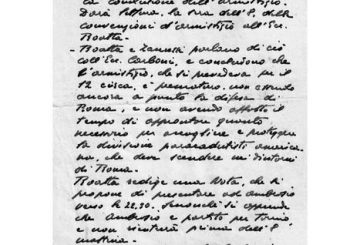 la conclusione dell'armistizio.
Darà lettura, la sera dell'8, delle
convenzioni d'armistizio all'Ecc.
Roatta.
- Roatta e Zanussi parlano di ciò
coll'Ecc. Carboni, e concludono che
l'armistizio, che si prevedeva per il
12 circa, è prematuro, non essendo
ancora a punto la difesa di
Roma, e non avendo affatto il
tempo di approntare quanto
necessario per accogliere e proteggere
la divisione paracadutisti america
na, che deve scendere nei dintorni
di Roma.
Roatta redige una Nota, che si
propone di presentare ad Ambrosio
verso le 22,30. Senonché si apprende
che Ambrosio è partito per Torino
e non rientrerà prima dell'8
mattina.